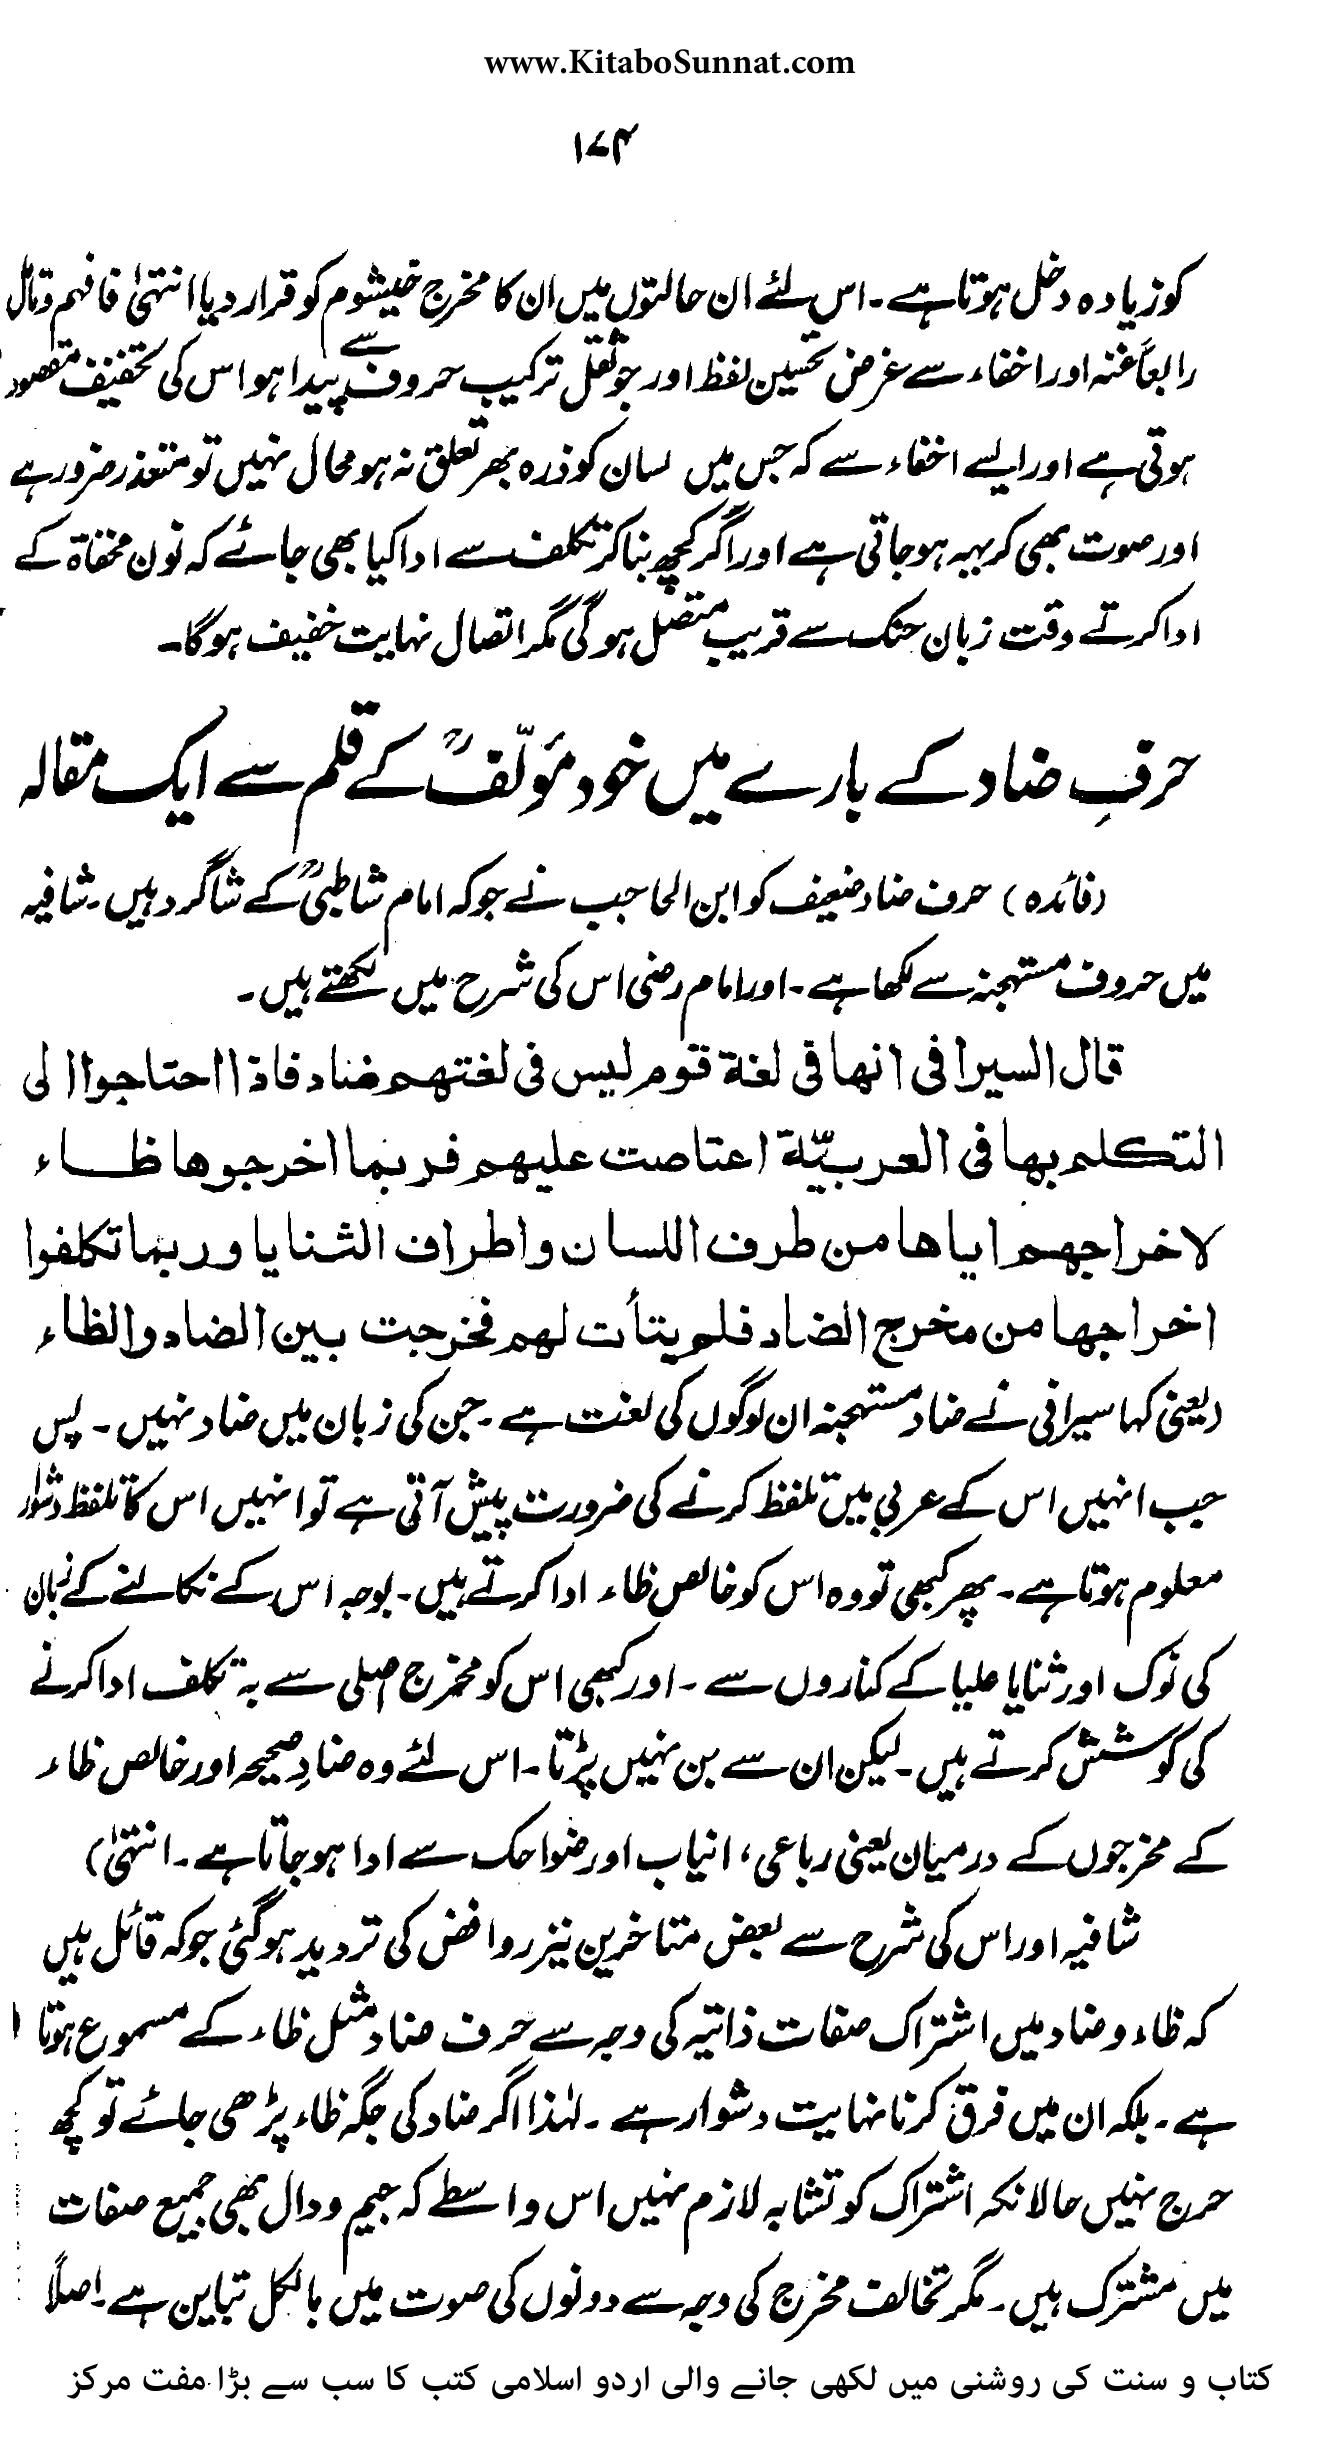 www.KitaboSunnat.com
۱۷۴
کو زیادہ دخل ہوتا ہے۔ اس لئے ان حالتوں میں ان کا مخرج خیشوم کو قرار دیا انتہیٰ فافہم وتأمل
رابعاً غنہ اور اخفاء سے غرض تحسین لفظ اور جو ثقل ترکیب حروف سے پیدا ہو اس کی تخفیف مقصود
ہوتی ہے اور ایسے اخفاء سے کہ جس میں لسان کو ذرہ بھر تعلق نہ ہو محال نہیں تو متعذر ضرور ہے
اور صوت بھی کریہہ ہو جاتی ہے اور اگر کچھ بنا کر تکلف سے ادا کیا بھی جائے کہ نون مخفاۃ کے
ادا کرتے وقت زبان حنک سے قریب متصل ہوگی مگر اتصال نہایت خفیف ہوگا۔
حرفِ ضاد کے بارے میں خود مؤلّفؒ کے قلم سے ایک مقالہ
(فائدہ) حرف ضاد ضعیف کو ابن الحاجب نے جو کہ امام شاطبیؒ کے شاگرد ہیں۔ شافیہ
میں حروف مستہجنہ سے لکھا ہے۔ اور امام رضی اس کی شرح میں لکھتے ہیں۔
قال السیرافی انها فی لغة قوم لیس فی لغتهم ضاد فاذا احتاجوا الی
التکلم بها فی العربیّة اعتاصت علیهم فربما اخرجوها ظاء
لاخراجهم ایاها من طرف اللسان واطراف الثنایا وربما تکلفوا
اخراجها من مخرج الضاد فلم یتأت لهم فخرجت بین الضاد والظاء
(یعنی کہا سیرافی نے ضاد مستہجنہ ان لوگوں کی لغت ہے۔ جن کی زبان میں ضاد نہیں۔ پس
جب انہیں اس کے عربی میں تلفظ کرنے کی ضرورت پیش آتی ہے تو انہیں اس کا تلفظ دشوار
معلوم ہوتا ہے۔ پھر کبھی تو وہ اس کو خالص ظاء ادا کرتے ہیں۔ بوجہ اس کے نکالنے کے زبان
کی نوک اور ثنایا علیا کے کناروں سے۔ اور کبھی اس کو مخرج اصلی سے بہ تکلف ادا کرنے
کی کوشش کرتے ہیں۔ لیکن ان سے بن نہیں پڑتا۔ اس لئے وہ ضادِ صحیحہ اور خالص ظاء
کے مخرجوں کے درمیان یعنی رباعی، انیاب اور ضواحک سے ادا ہو جاتا ہے۔ انتہیٰ)
شافیہ اور اس کی شرح سے بعض متاخرین نیز روافض کی تردید ہوگئی جو کہ قائل ہیں
کہ ظاء و ضاد میں اشتراک صفات ذاتیہ کی وجہ سے حرف ضاد مثل ظاء کے مسموع ہوتا
ہے۔ بلکہ ان میں فرق کرنا نہایت دشوار ہے۔ لہٰذا اگر ضاد کی جگہ ظاء پڑھی جائے تو کچھ
حرج نہیں حالانکہ اشتراک کو تشابہ لازم نہیں اس واسطے کہ جیم و دال بھی جمیع صفات
میں مشترک ہیں۔ مگر تخالف مخرج کی وجہ سے دونوں کی صوت میں بالکل تباین ہے۔ اصلاً
کتاب و سنت کی روشنی میں لکھی جانے والی اردو اسلامی کتب کا سب سے بڑا مفت مرکز